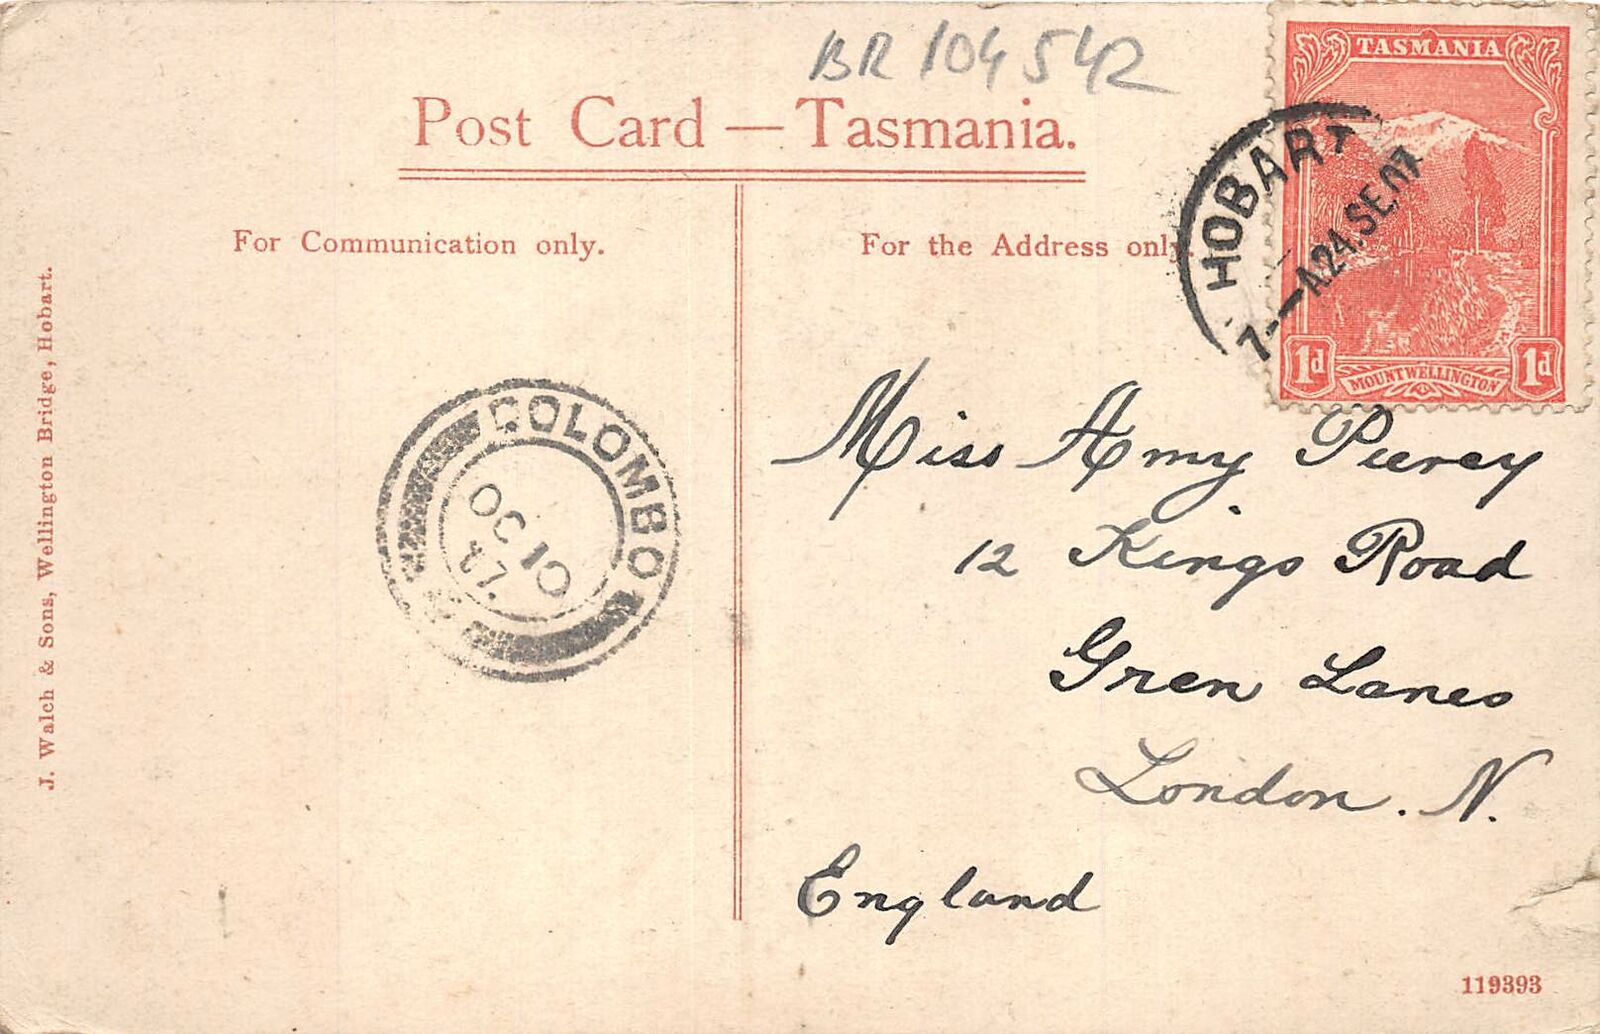 BR 104542
Post Card — Tasmania.
For Communication only.
For the Address only
J. Walch & Sons, Wellington Bridge, Hobart.
TASMANIA
1d MOUNT WELLINGTON 1d
HOBART
7- —A24.SE.07
COLOMBO
OC 10
07.
Miss Amy Piercy
12 Kings Road
Gren Lanes
London. N.
England
119393